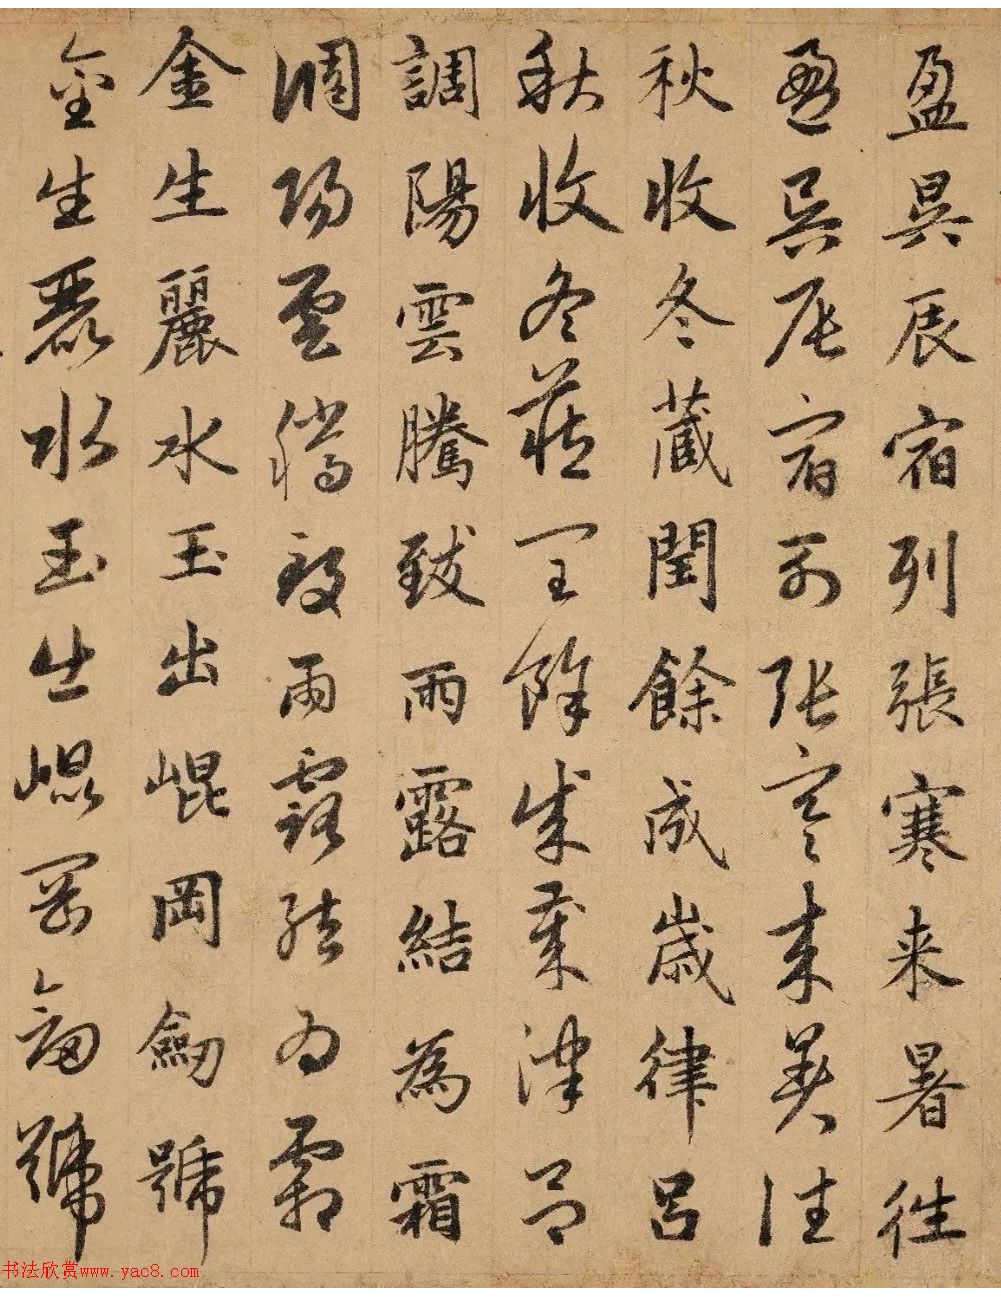 盈昃辰宿列張寒来暑徃
盈昃辰宿列張寒来暑往
秋收冬蔵閏餘成歳律呂
秋收冬蔵閏餘成歳律呂
調陽雲騰致雨露結為霜
調陽雲騰致雨露結為霜
金生麗水玉出崐岡劒號
金生麗水玉出崐岡劒號
书法欣赏www.yac8.com